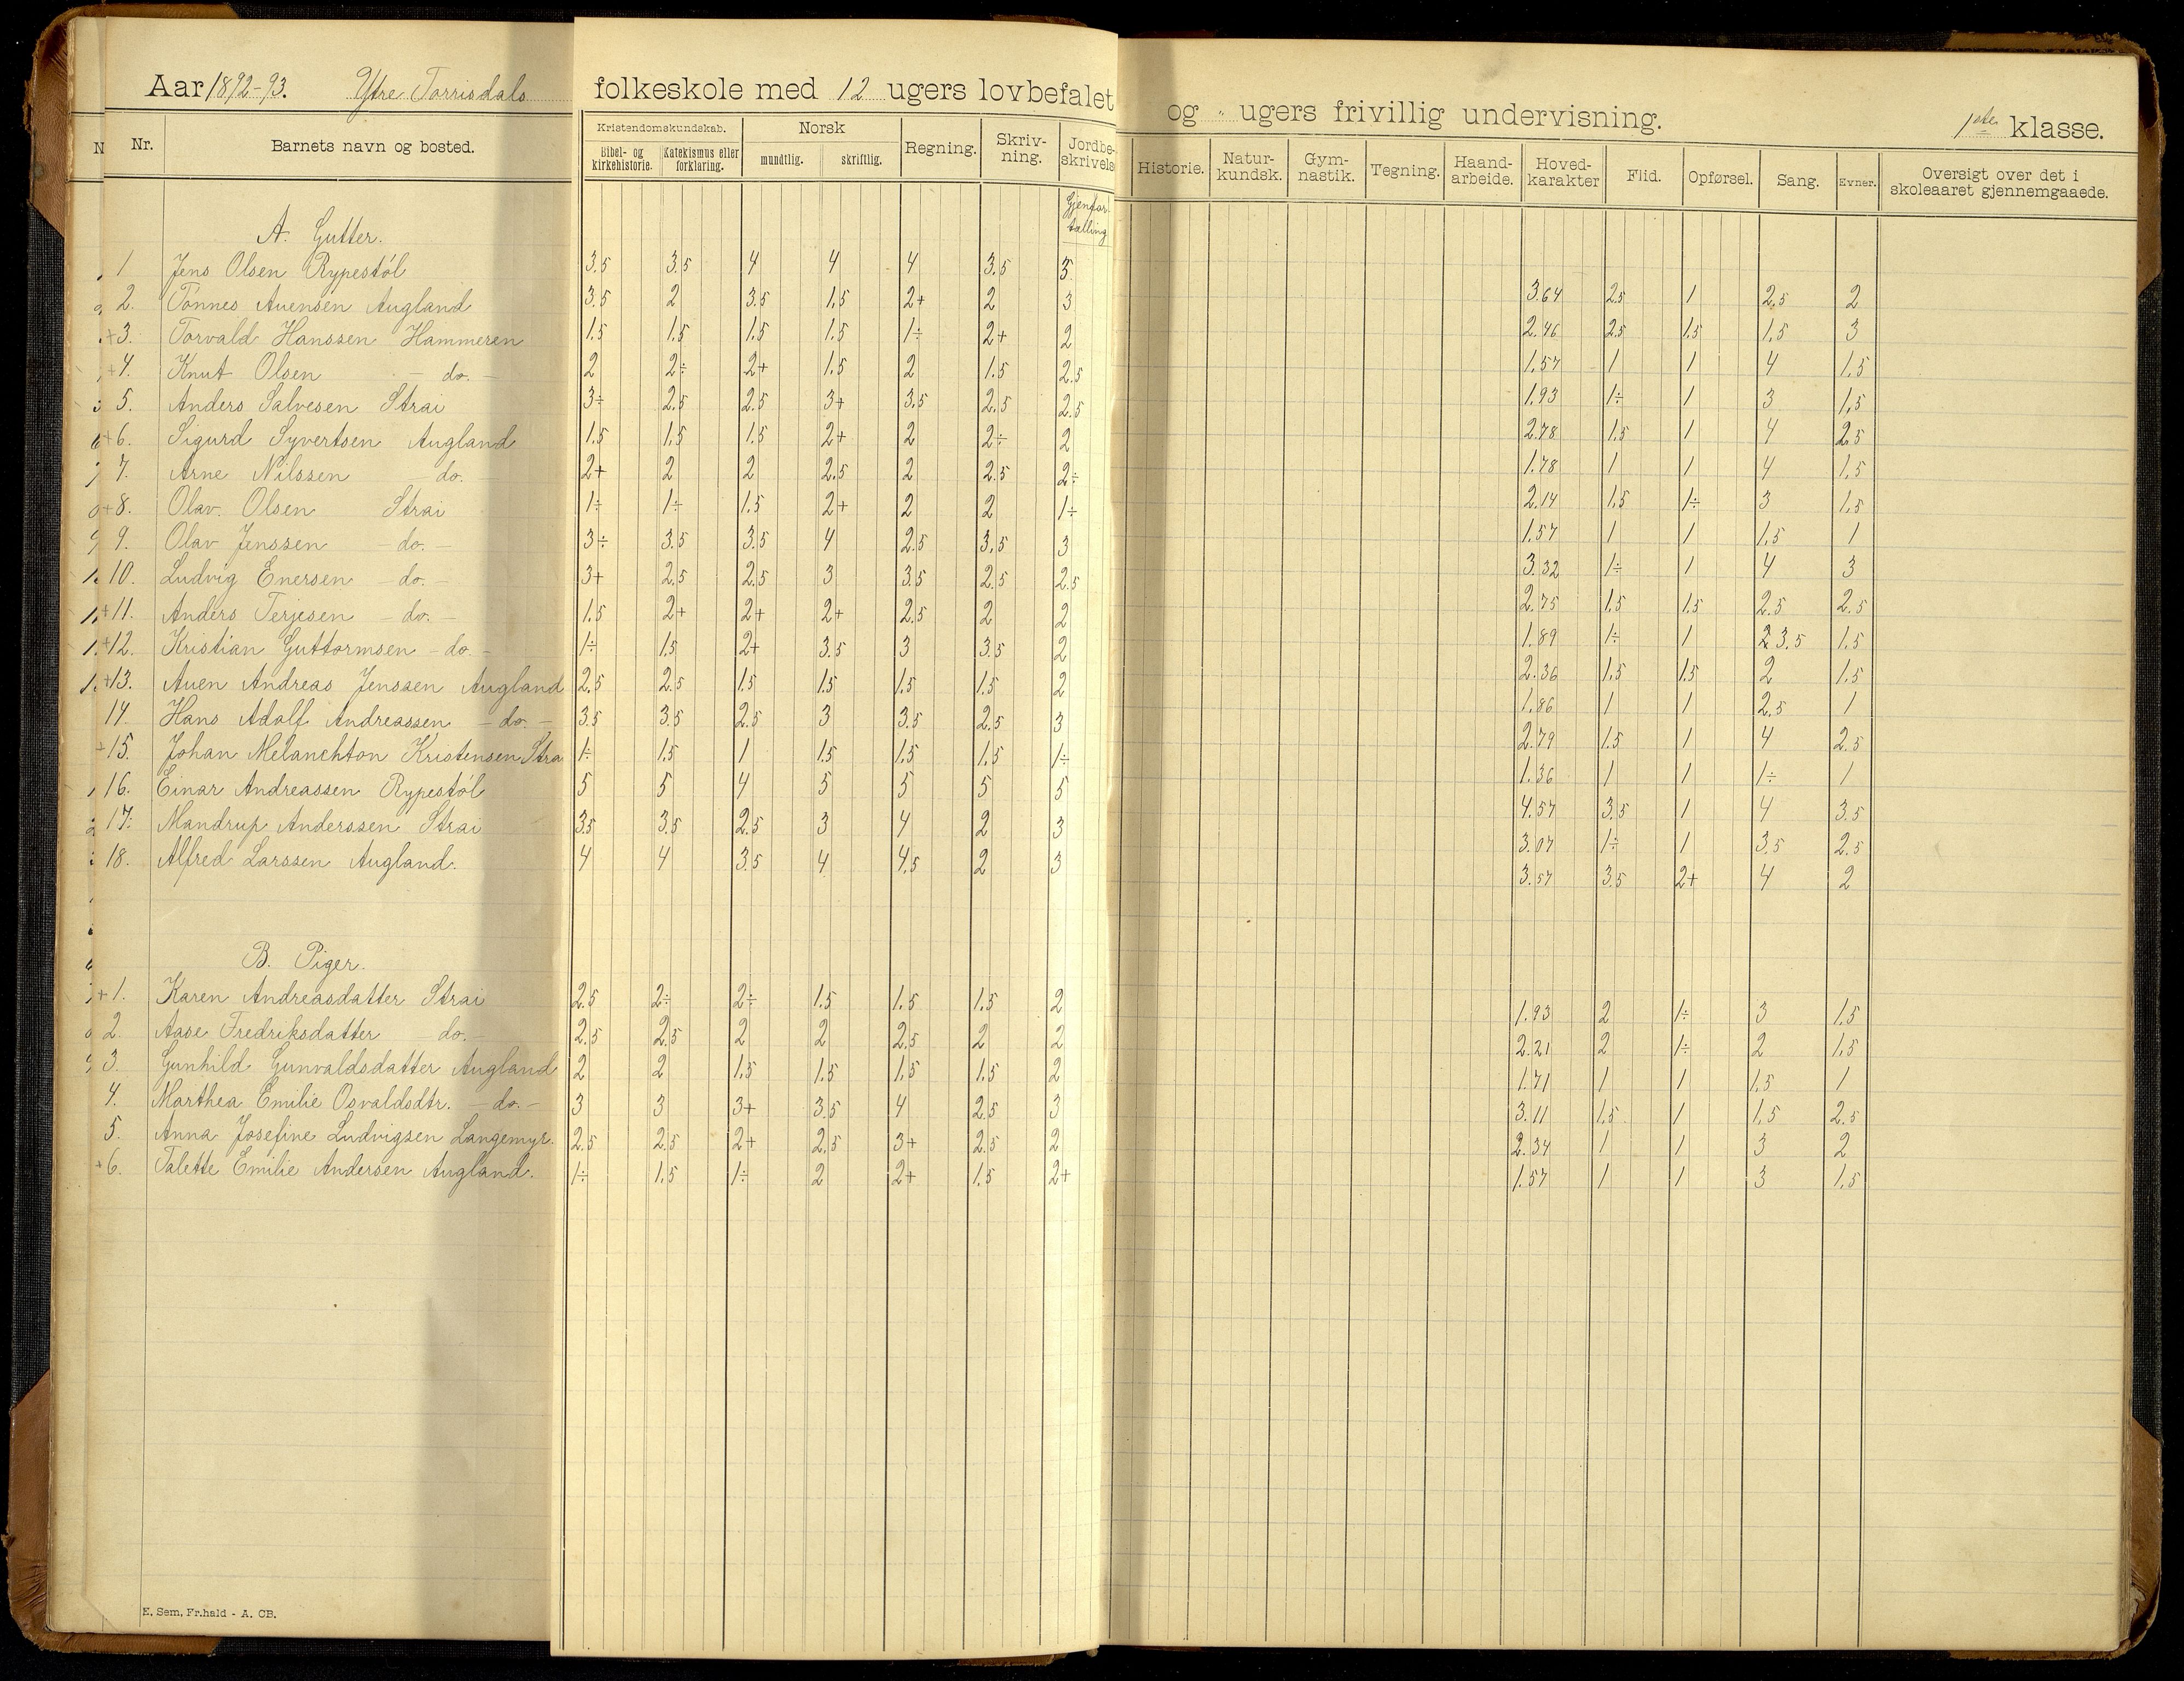 Aar 1892-93. Ytre Torrisdals folkeskole med 12 ugers lovbefalet og " ugers frivillig undervisning. 1ste klasse.
Nr. Barnets navn og bosted. Kristendomskundskab. Bibel- og kirkehistorie. Katekismus eller forklaring. Norsk mundtlig. skriftlig. Regning. Skriv-ning. Jordbe-skrivels Historie. Natur-kundsk. Gym-nastik. Tegning. Haand-arbeide. Hoved-karakter Flid. Opførsel. Sang. Evner. Oversigt over det i skoleaaret gjennemgaaede.
Gjenfor-tælling
A. Gutter.
1 Jens Olsen Rypestøl 3.5 3.5 4 4 4 3.5 3 3.64 2.5 1 2.5 2
2. Tønnes Auensen Augland 3.5 2 3.5 1.5 2+ 2 3 2.46 2.5 1.5 1.5 3
+3. Torvald Hanssen Hammeren 1.5 1.5 1.5 1.5 1÷ 2+ 2 1.57 1 1 4 1.5
+4. Knut Olsen - do. - 2 2÷ 2+ 1.5 2 1.5 2.5 1.93 1÷ 1 3 1.5
5. Anders Salvesen Strai 3÷ 2.5 2.5 3+ 3.5 2.5 2.5 2.78 1.5 1 4 2.5
+6. Sigurd Syvertsen Augland 1.5 1.5 1.5 2+ 2 2÷ 2 1.78 1 1 4 1.5
7. Arne Nilssen - do. - 2+ 2 2 2.5 2 2.5 2÷ 2.14 1.5 1÷ 3 1.5
+8. Olav Olsen Strai 1÷ 1÷ 1.5 2+ 2 2 1÷ 1.57 1 1 1.5 1
9. Olav Jenssen - do. - 3÷ 3.5 3.5 4 2.5 3.5 3 3.32 1÷ 1 4 3
10. Ludvig Enersen - do. - 3+ 2.5 2.5 3 3.5 2.5 2.5 2.75 1.5 1.5 2.5 2.5
+11. Anders Terjesen - do. - 1.5 2+ 2+ 2+ 2.5 2 2 1.89 1÷ 1 2 3.5 1.5
+12. Kristian Guttormsen - do. - 1÷ 1.5 2+ 3.5 3 3.5 2 2.36 1.5 1.5 2 1.5
+13. Auen Andreas Jenssen Augland 2.5 2.5 1.5 1.5 1.5 1.5 2 1.86 1 1 2.5 1
14. Hans Adolf Andreassen - do. - 3.5 3.5 2.5 3 3.5 2.5 3 2.79 1.5 1 4 2.5
+15. Johan Melanchton Kristensen Stra 1÷ 1.5 1 1.5 1.5 1.5 1÷ 1.36 1 1 1÷ 1
16. Einar Andreassen Rypestøl 5 5 4 5 5 5 5 4.57 3.5 1 4 3.5
17. Mandrup Anderssen Strai 3.5 3.5 2.5 3 4 2 3 3.07 1÷ 1 3.5 2.5
18. Alfred Larssen Augland. 4 4 3.5 4 4.5 2 3 3.57 3.5 2+ 4 2
B. Piger.
+1. Karen Andreasdatter Strai 2.5 2÷ 2÷ 1.5 1.5 1.5 2 1.93 2 1÷ 3 1.5
2. Aase Fredriksdatter do. - 2.5 2.5 2 2 2.5 2 2 2.21 2 1÷ 2 1.5
3. Gunhild Gunvaldsdatter Augland 2 2 1.5 1.5 1.5 1.5 2 1.71 1 1 1.5 1
4. Marthea Emilie Osvaldsdtr. - do. - 3 3 3+ 3.5 4 2.5 3 3.11 1.5 1 1.5 2.5
5. Anna Josefine Ludvigsen Langemyr. 2.5 2.5 2+ 2.5 3+ 2.5 2 2.34 1 1 3 2
+6. Talette Emilie Andersen Augland. 1÷ 1.5 1÷ 2 2+ 1.5 2+ 1.57 1 1 3 1.5
E. Sem, Fr.hald - A. CB.